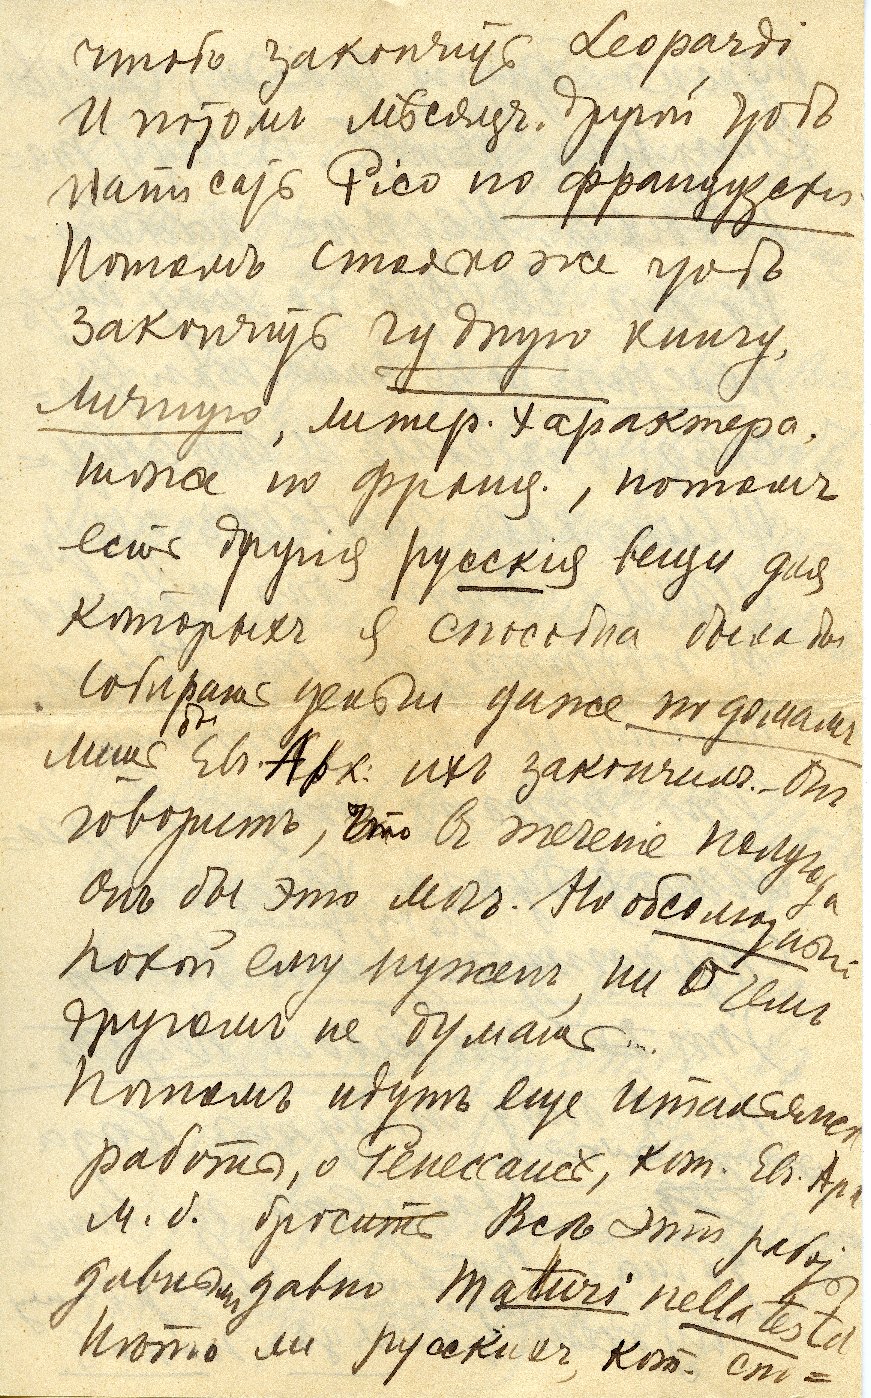 чтобъ закончить Leopardi
И потомъ мѣсяцъ, другой чтобъ
написать Pico по французски.
Потомъ столько же чтобъ
закончить чудную книгу,
личную, литер. характера,
тоже по франц., потомъ
есть другія русскія вещи для
которыхъ я способна была бы
собирать деньги даже по домамъ
лишь бы Ев. Арк. ихъ закончилъ. – Онъ
говоритъ, что въ теченіе полугода
онъ бы это могъ. Но абсолютный
покой ему нуженъ, ни о чемъ
другомъ не думать...
Потомъ идутъ еще итальянск
работы, о Ренессансѣ, кот. Ев. Арк
м. б. бросить Всѣ эти работы
давнымъ давно maturi nella testa
Нѣтъ ли русскихъ, кот. сп=